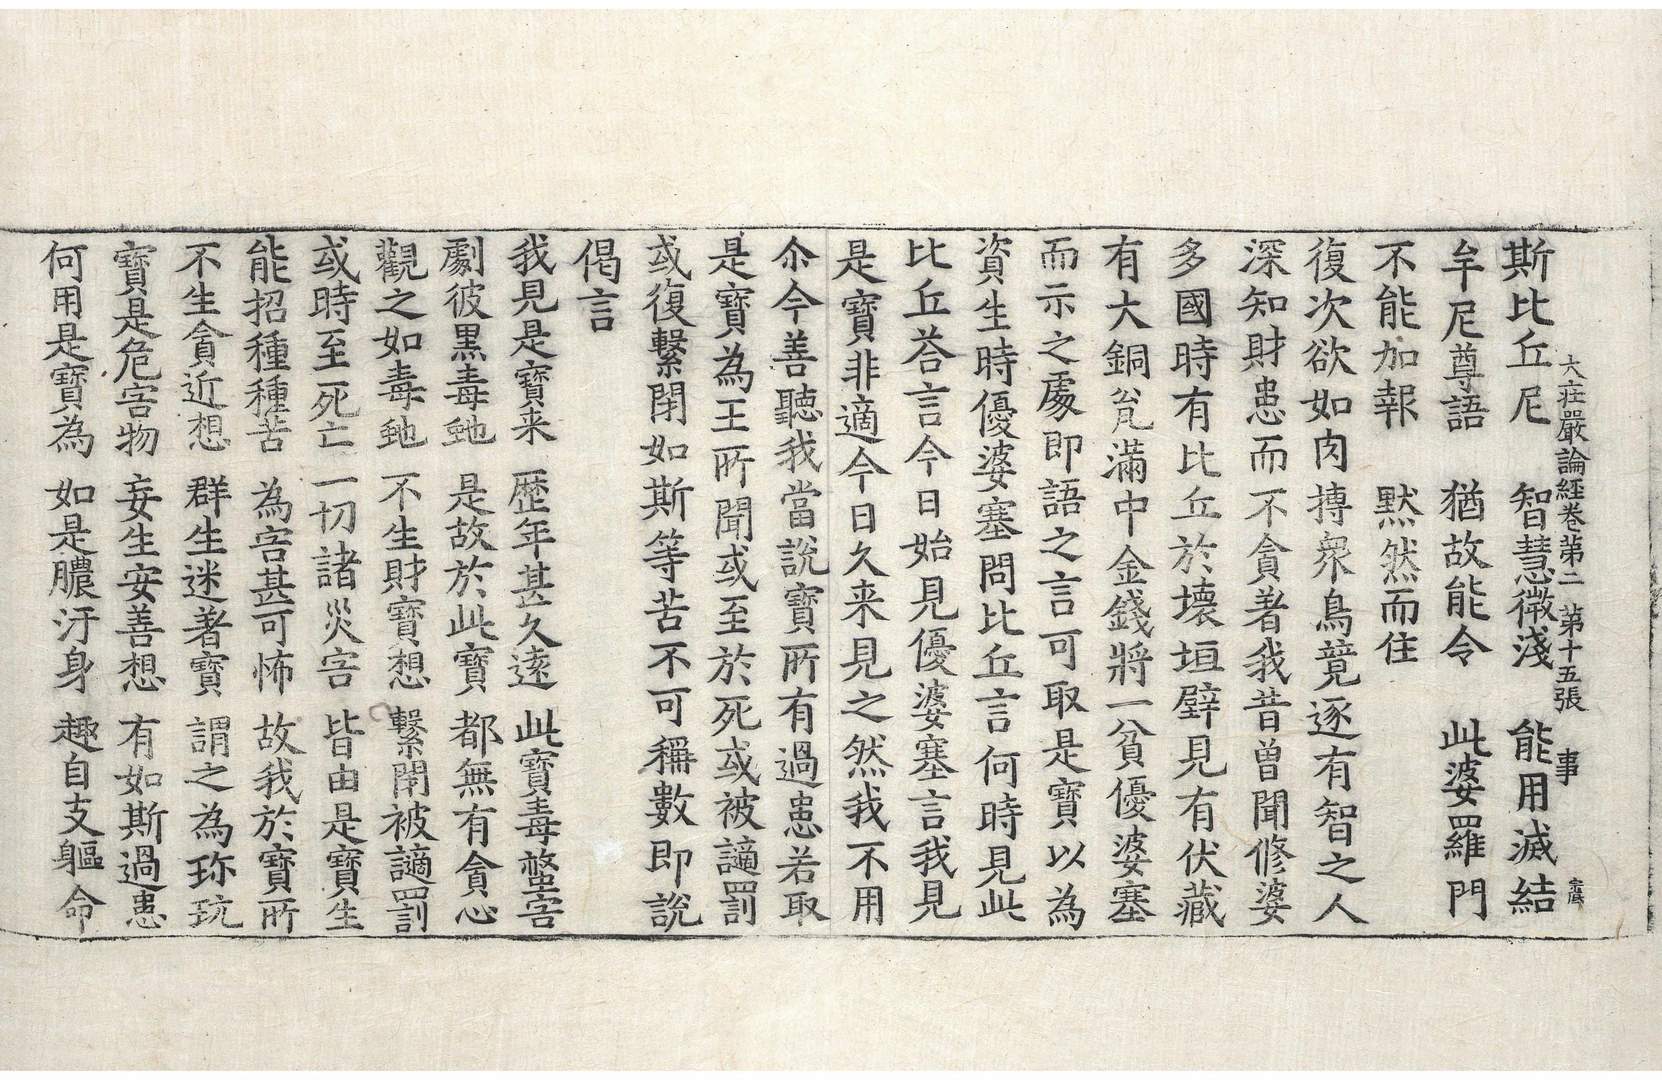 大莊嚴論經卷第二 第十五張 事
斯比丘尼 智慧微淺 能用滅結
牟尼尊語 猶故能令 此婆羅門
不能加報 默然而住
復次欲如肉摶衆鳥競逐有智之人
深知財患而不貪著我昔曽聞脩婆
多國時有比丘於壊垣壁見有伏藏
有大銅瓮滿中金錢將一貧優婆塞
而示之處即語之言可取是寶以為
資生時優婆塞問比丘言何時見此
比丘荅言今日始見優婆塞言我見
是寶非適今日久来見之然我不用
尒今善聽我當說寶所有過患若取
是寶為王所聞或至於死或被讁罰
或復繫閉如斯等苦不可稱數即說
偈言
我見是寶来 歴年甚久遠 此寶毒螫害
劇彼黒毒虵 是故於此寶 都無有貪心
觀之如毒虵 不生財寶想 繫閉被讁罰
或時至死亡 一切諸災害 皆由是寶生
能招種種苦 為害甚可怖 故我於寶所
不生貪近想 群生迷著寶 謂之為珎玩
寶是危害物 妄生安善想 有如斯過患
何用是寶為 如是膿汙身 趣自支軀命